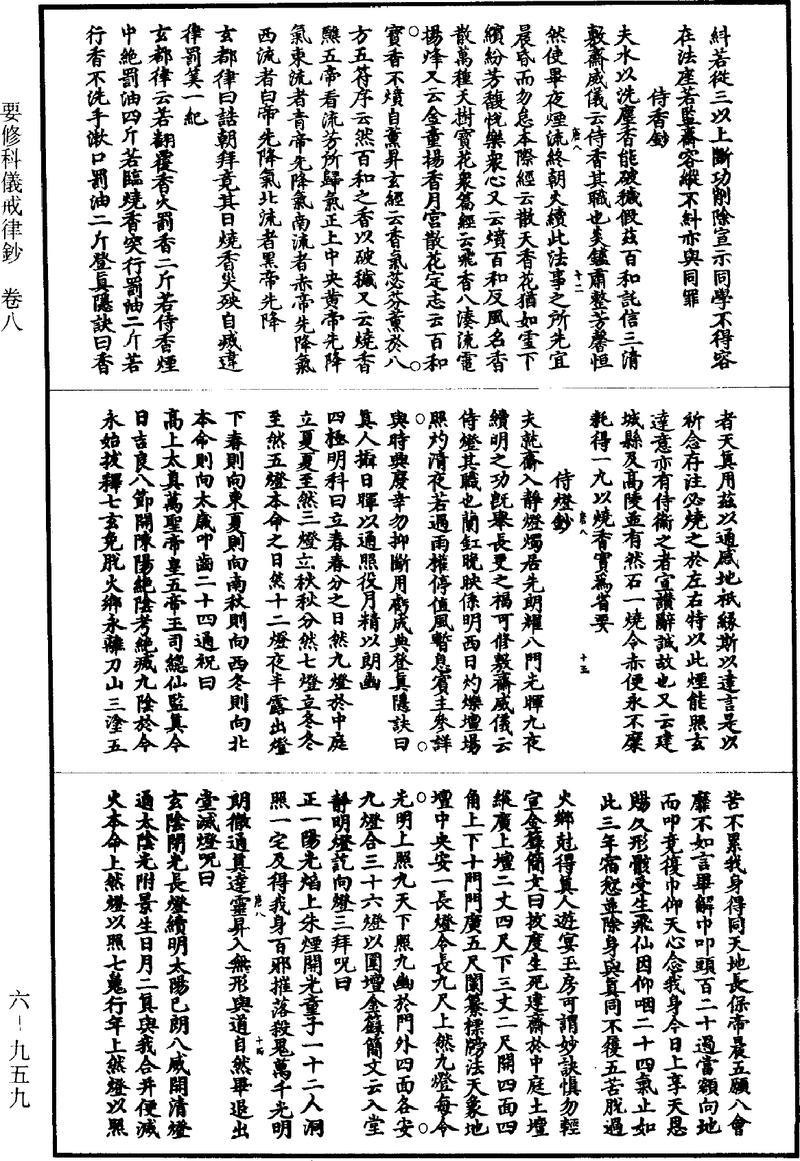 糾若從三以上斷功削除宣示同學不得容
在法座若監齋容縱不糾亦與同罪
侍香鈔
夫水以洗塵香能破穢假茲百和託信三清
敷齋威儀云侍香其職也炎鑪肅整芳馨恒
然使畢夜煙流終朝火續此法事之所先宜
晨昏而勿怠本際經云散天香花猶如雪下
繽紛芳馥悅樂衆心又云燌百和反風名香
散萬種天樹寶花衆篇經云飛香八湊流電
揚烽又云金童揚香月宮散花定志云百和
寶香不燌自薰昇玄經云香氣苾芬薰於八
方五符序云然百和之香以破穢又云燒香
驗五帝看流芳所歸氣正上中央黄帝先降
氣東流者青帝先降氣南流者赤帝先降氣
西流者白帝先降氣北流者黑帝先降
玄都律曰詣朝拜竟其日燒香災殃自滅違
律罰筭一紀
玄都律云若翻覆香火罰香二斤若侍香煙
中絶罰油四斤若臨燒香突行罰油二斤若
行香不洗手漱口罰油二斤登真隱訣曰香
者天真用茲以通感地祇緣斯以達言是以
祈念存注必燒之於左右特以此煙能照玄
達意亦有侍衛之者宣讚辭誠故也又云建
城縣及高陵並有然石一燒令赤便永不糜
耗得一九以燒香實爲省要
侍燈鈔
夫就齋入靜燈燭居先朗耀八門光暉九夜
續明之功既舉長更之福可修敷齋威儀云
侍燈其職也蘭釭晥映係明西日灼爍壇場
照灼清夜若遇雨權停值風暫息賓主參詳
與時興廢幸勿抑斷用虧成典登真隱訣曰
真人攝日暉以通照役月精以朗幽
四極明科曰立春春分之日然九燈於中庭
立夏夏至然三燈立秋秋分然七燈立冬冬
至然五燈本命之日然十二燈夜半露出燈
下春則向東夏則向南秋則向西冬則向北
本命則向太歲叩齒二十四通祝曰
高上太真萬聖帝皇五帝玉司總仙監真今
日吉良八節開陳陽絶陰考絶滅九陰於今
永始拔釋七玄免脫火鄉永離刀山三塗五
苦不累我身得同天地長保帝晨五願八會
靡不如言畢解巾叩頭百二十過當額向地
而叩竟復巾仰天心念我身今日上享天恩
賜久形骸受生飛仙因仰咽二十四氣止如
此三年宿愆並除身與真同不復五苦脫過
火鄉尅得真人遊宴玉房可謂妙訣慎勿輕
宣金籙簡文曰拔度生死建齋於中庭土壇
縱廣上壇二丈四尺下三丈二尺開四面四
角上下十門門廣五尺闌纂標牓法天象地
壇中央安一長燈令長九尺上然九燈每令
光明上照九天下照九幽於門外四面各安
九燈合三十六燈以圍壇金籙簡文云入堂
靜明燈訖向燈三拜呪曰
正一陽光焰上朱煙開光童子一十二人洞
照一宅及得我身百邪摧落殺鬼萬千光明
朗徹通真達靈昇入無形與道自然畢退出
堂滅燈呪曰
玄陰閉光長燈續明太陽已朗八威開清燈
通太陰光附景生日月二真與我合并便滅
火本命上然燈以照七魂行年上然燈以照
要修科儀戒律鈔　卷八
六－九五九